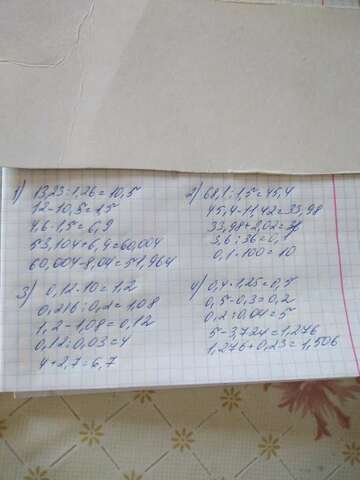 1) 13,23:1,26=10,5
12-10,5=1,5
4,6·1,5=6,9
53,104+6,9=60,004
60,004-8,04=51,964
2) 68,1:1,5=45,4
45,4-11,42=33,98
33,98+2,02=36
3,6:36=0,1
0,1·100=10
3) 0,12·10=1,2
0,216:0,2=1,08
1,2-1,08=0,12
0,12:0,03=4
4+2,7=6,7
4) 0,4·1,25=0,5
0,5-0,3=0,2
0,2:0,04=5
5-3,724=1,276
1,276+0,23=1,506